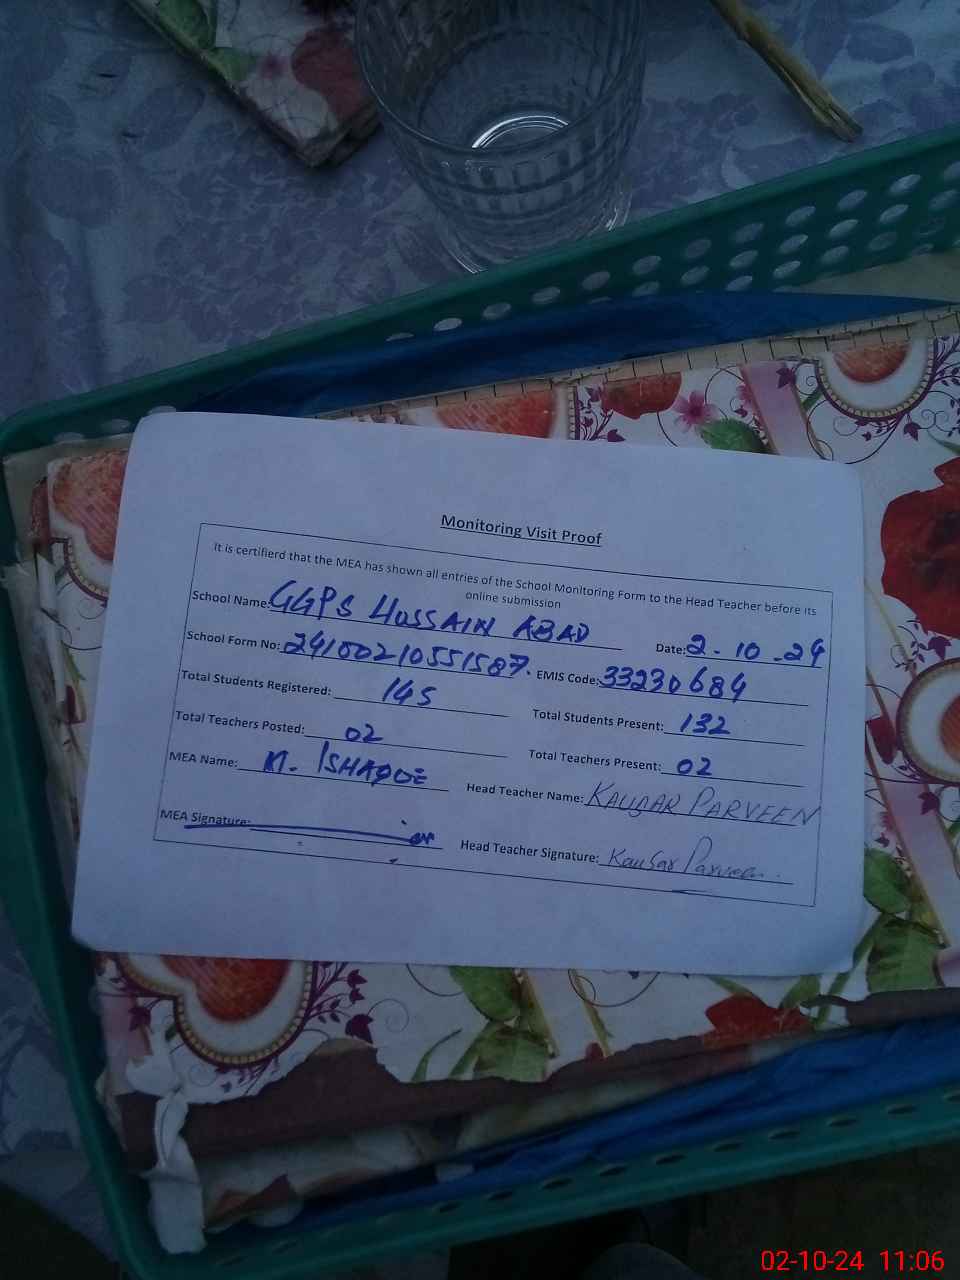 Monitoring Visit Proof
It is certifierd that the MEA has shown all entries of the School Monitoring Form to the Head Teacher before its
online submission
School Name: GGPS HUSSAIN ABAD Date: 2-10-24
School Form No: 24100210551587. EMIS Code: 33230684
Total Students Registered: 145 Total Students Present: 132
Total Teachers Posted: 02 Total Teachers Present: 02
MEA Name: M. ISHAQUE Head Teacher Name: KAUSAR PARVEEN
MEA Signature: Head Teacher Signature: Kausar Parveen.
02-10-24 11:06